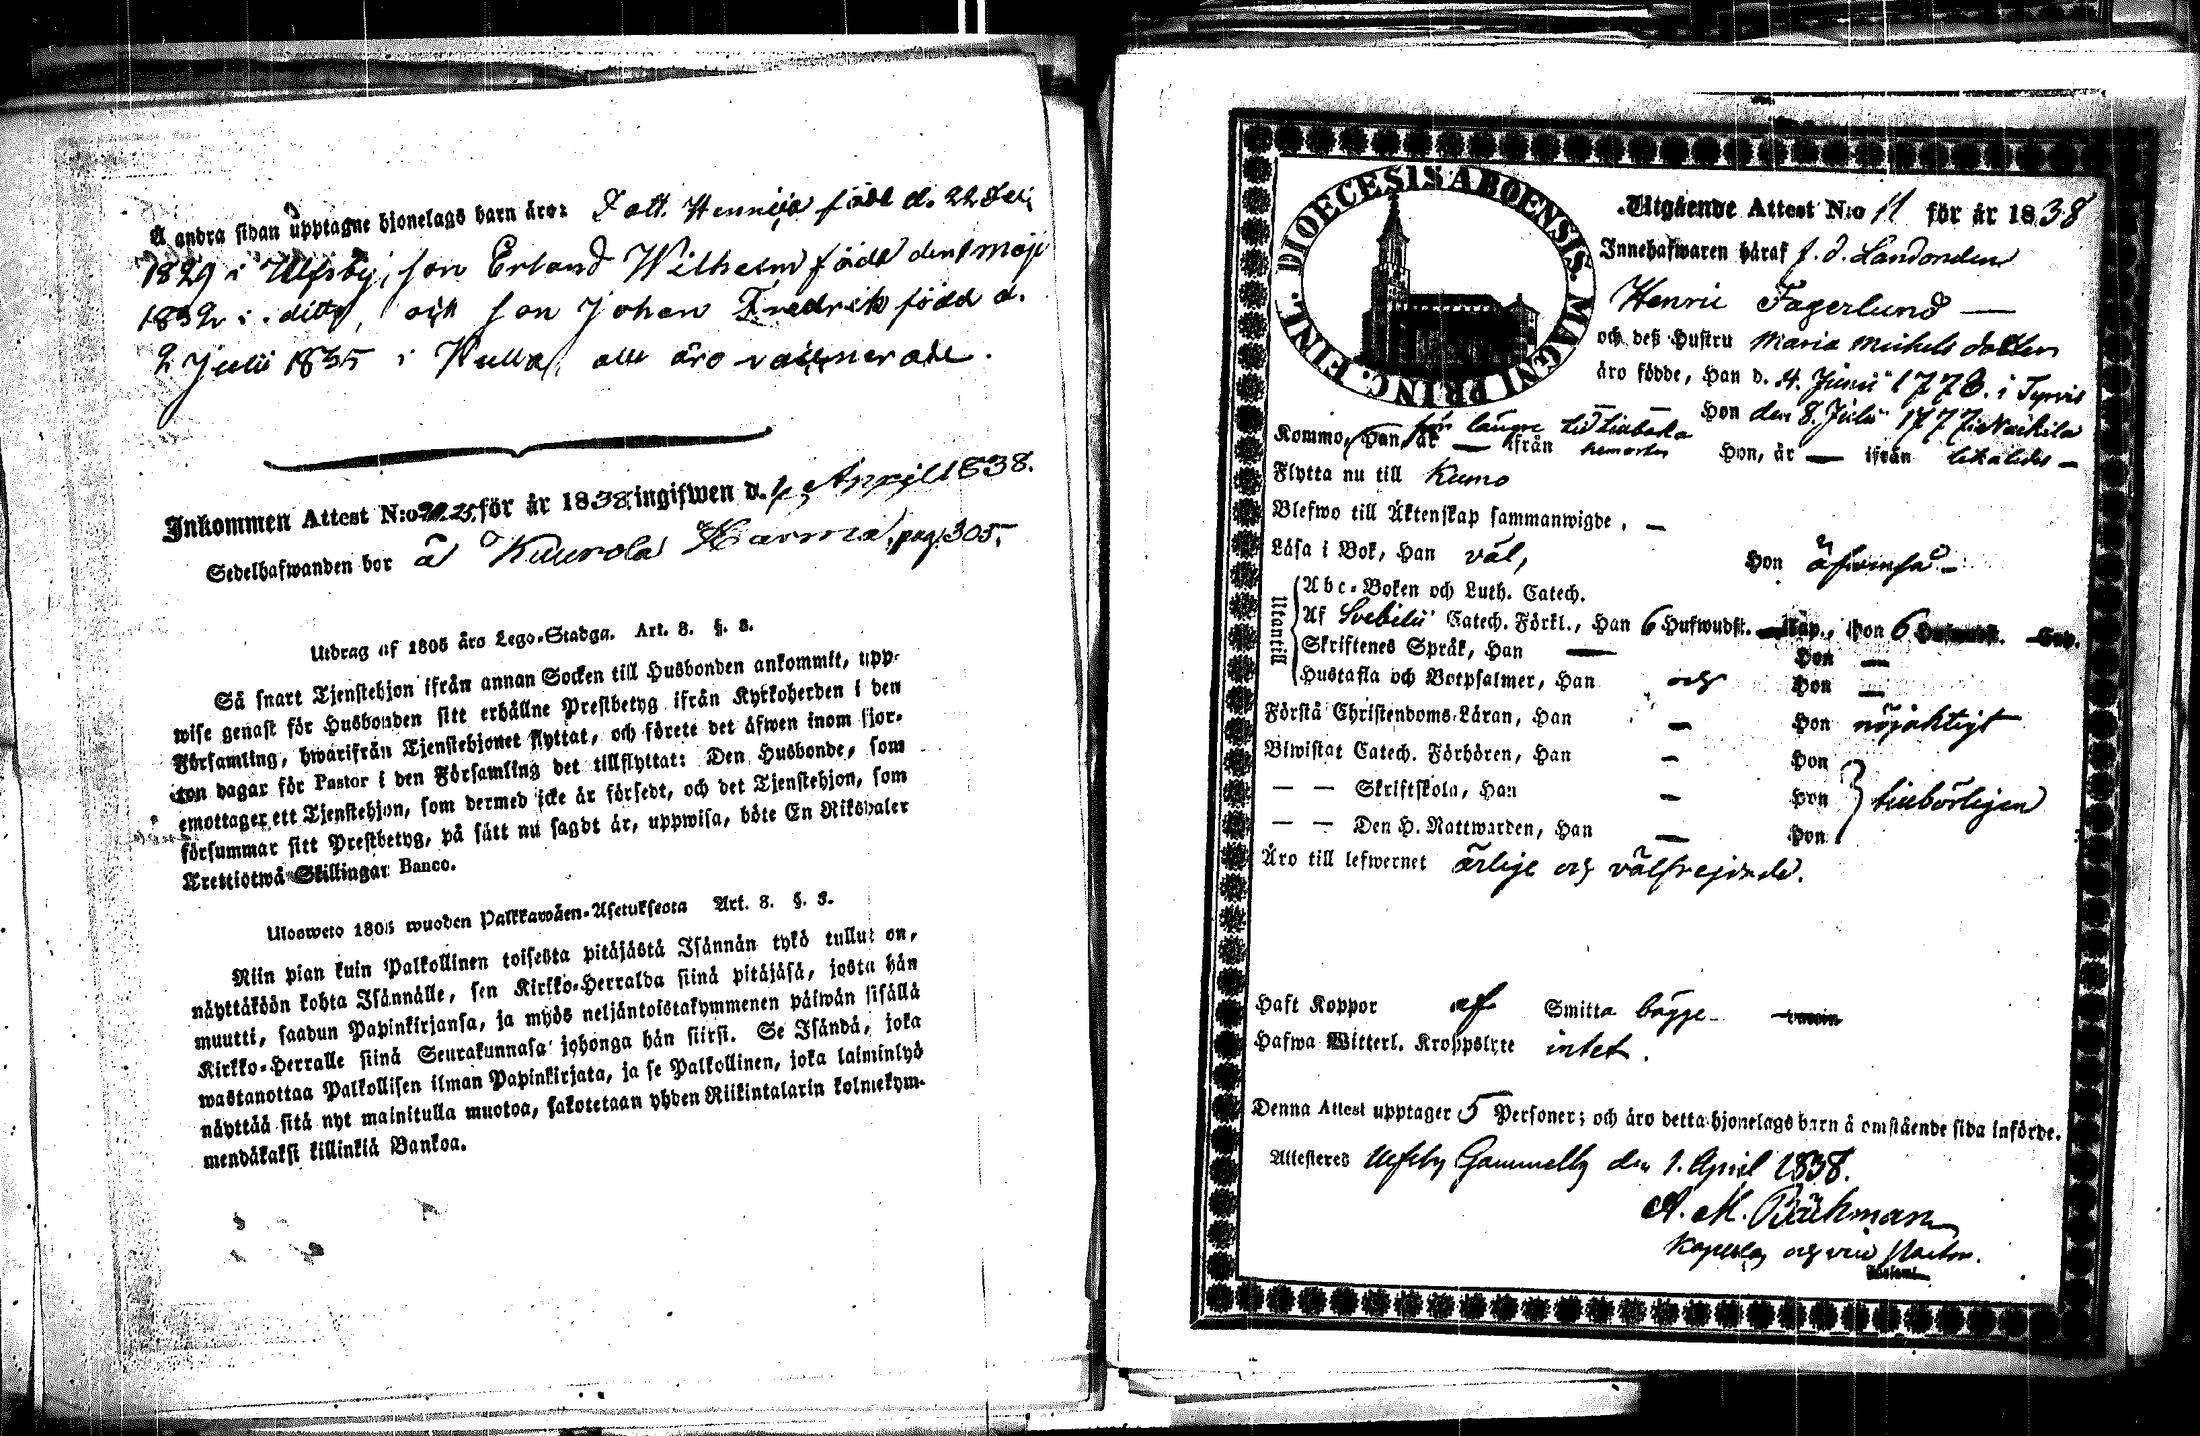 Å andra sidan upptagne hjonelags barn äro: Dott. Henrica född d. 22
1829 i Ulfsby, son Erland Wilhelm född den 1 Maji
1832 i ditto, och son Johan Fredrik född d.
2 Julii 1835 i Kulla, alla äro vaccinerade.
Inkommen Attest N:o 25. för år 1838. ingifwen d. April 1838.
Sedelhafwanden bor å Kuurola Harma, pag. 305.
Utdrag af 1805 års Lego-Stadga. Art. 3. §. 3.
Så snart Tjenstehjon ifrån annan Socken till Husbonden ankommit, upp-
wise genast för Husbonden sitt erhållne Prestbetyg ifrån Kyrkoherden i den
Församling, hwarifrån Tjenstehjonet flyttat, och förete det äfwen inom fjor-
ton dagar för Pastor i den Församling det tillflyttat: Den Husbonde, som
emottager ett Tjenstehjon, som dermed icke är försedt, och det Tjenstehjon, som
försummar sitt Prestbetyg, på sätt nu sagdt är, uppwisa, böte En Riksdaler
Trettiotwå Skillingar Banco.
Ulosweto 1805 wuoden Palkkawäen-Asetuksesta Art. 3. §. 3.
Niin pian kuin Palkollinen toisesta pitäjästä Isännän tykö tullut on,
näyttäköön kohta Isännälle, sen Kirkko-Herralda siinä pitäjäsä, josta hän
muutti, saadun Papinkirjansa, ja myös neljäntoistakymmenen päiwän sisällä
Kirkko-Herralle siinä Seurakunnasa johonga hän siirsi. Se Isändä, joka
wastanottaa Palkollisen ilman Papinkirjata, ja se Palkollinen, joka laiminlyö
näyttää sitä nyt mainitulla muotoa, sakotetaan yhden Riikintalarin kolmekym-
mendäkaksi killinkiä Bankoa.
DIOECESIS ABOENSIS. MAGNI PRINC. FINL.
Utgående Attest N:o 11 för år 1838
Innehafwaren häraf f. d. Landbonden
Henric Fagerlund —
och deß Hustru Maria Michelsdotter
äro födde, Han d. 4. Junii 1778. i Tyrvis
Hon den 8. Julii 1777 i Nakkila
för längre tid tillbaka
Kommo, Han, är — ifrån Hon, är — ifrån likaledes —
Flytta nu till Kumo
Blefwo till Äktenskap sammanwigde, —
Läsa i Bok, Han väl, Hon äfvenså —
Utantill
Abc-Boken och Luth. Catech.
Af Svebilii Catech. Förkl., Han 6 Hufwudst. Kap., Hon 6 Hufwudst. Cap.
Skriftenes Språk, Han — Hon —
Hustafla och Botpsalmer, Han och Hon —
Förstå Christendoms-Läran, Han — Hon nöjaktigt
Biwistat Catech. Förhören, Han — Hon
— — Skriftskola, Han — Hon tillbörligen
— — Den H. Nattwarden, Han — Hon
Äro till lefwernet ärlige och välfrejdade.
Haft Koppor af Smitta bägge —
Hafwa Witterl. Kroppslyte intet.
Denna Attest upptager 5 Personer; och äro detta hjonelags barn å omstående sida införde.
Attesteres Ulfsby Gammelby den 1. April 1838.
A. M. Bäckman
Kapellan och vice Pastor.